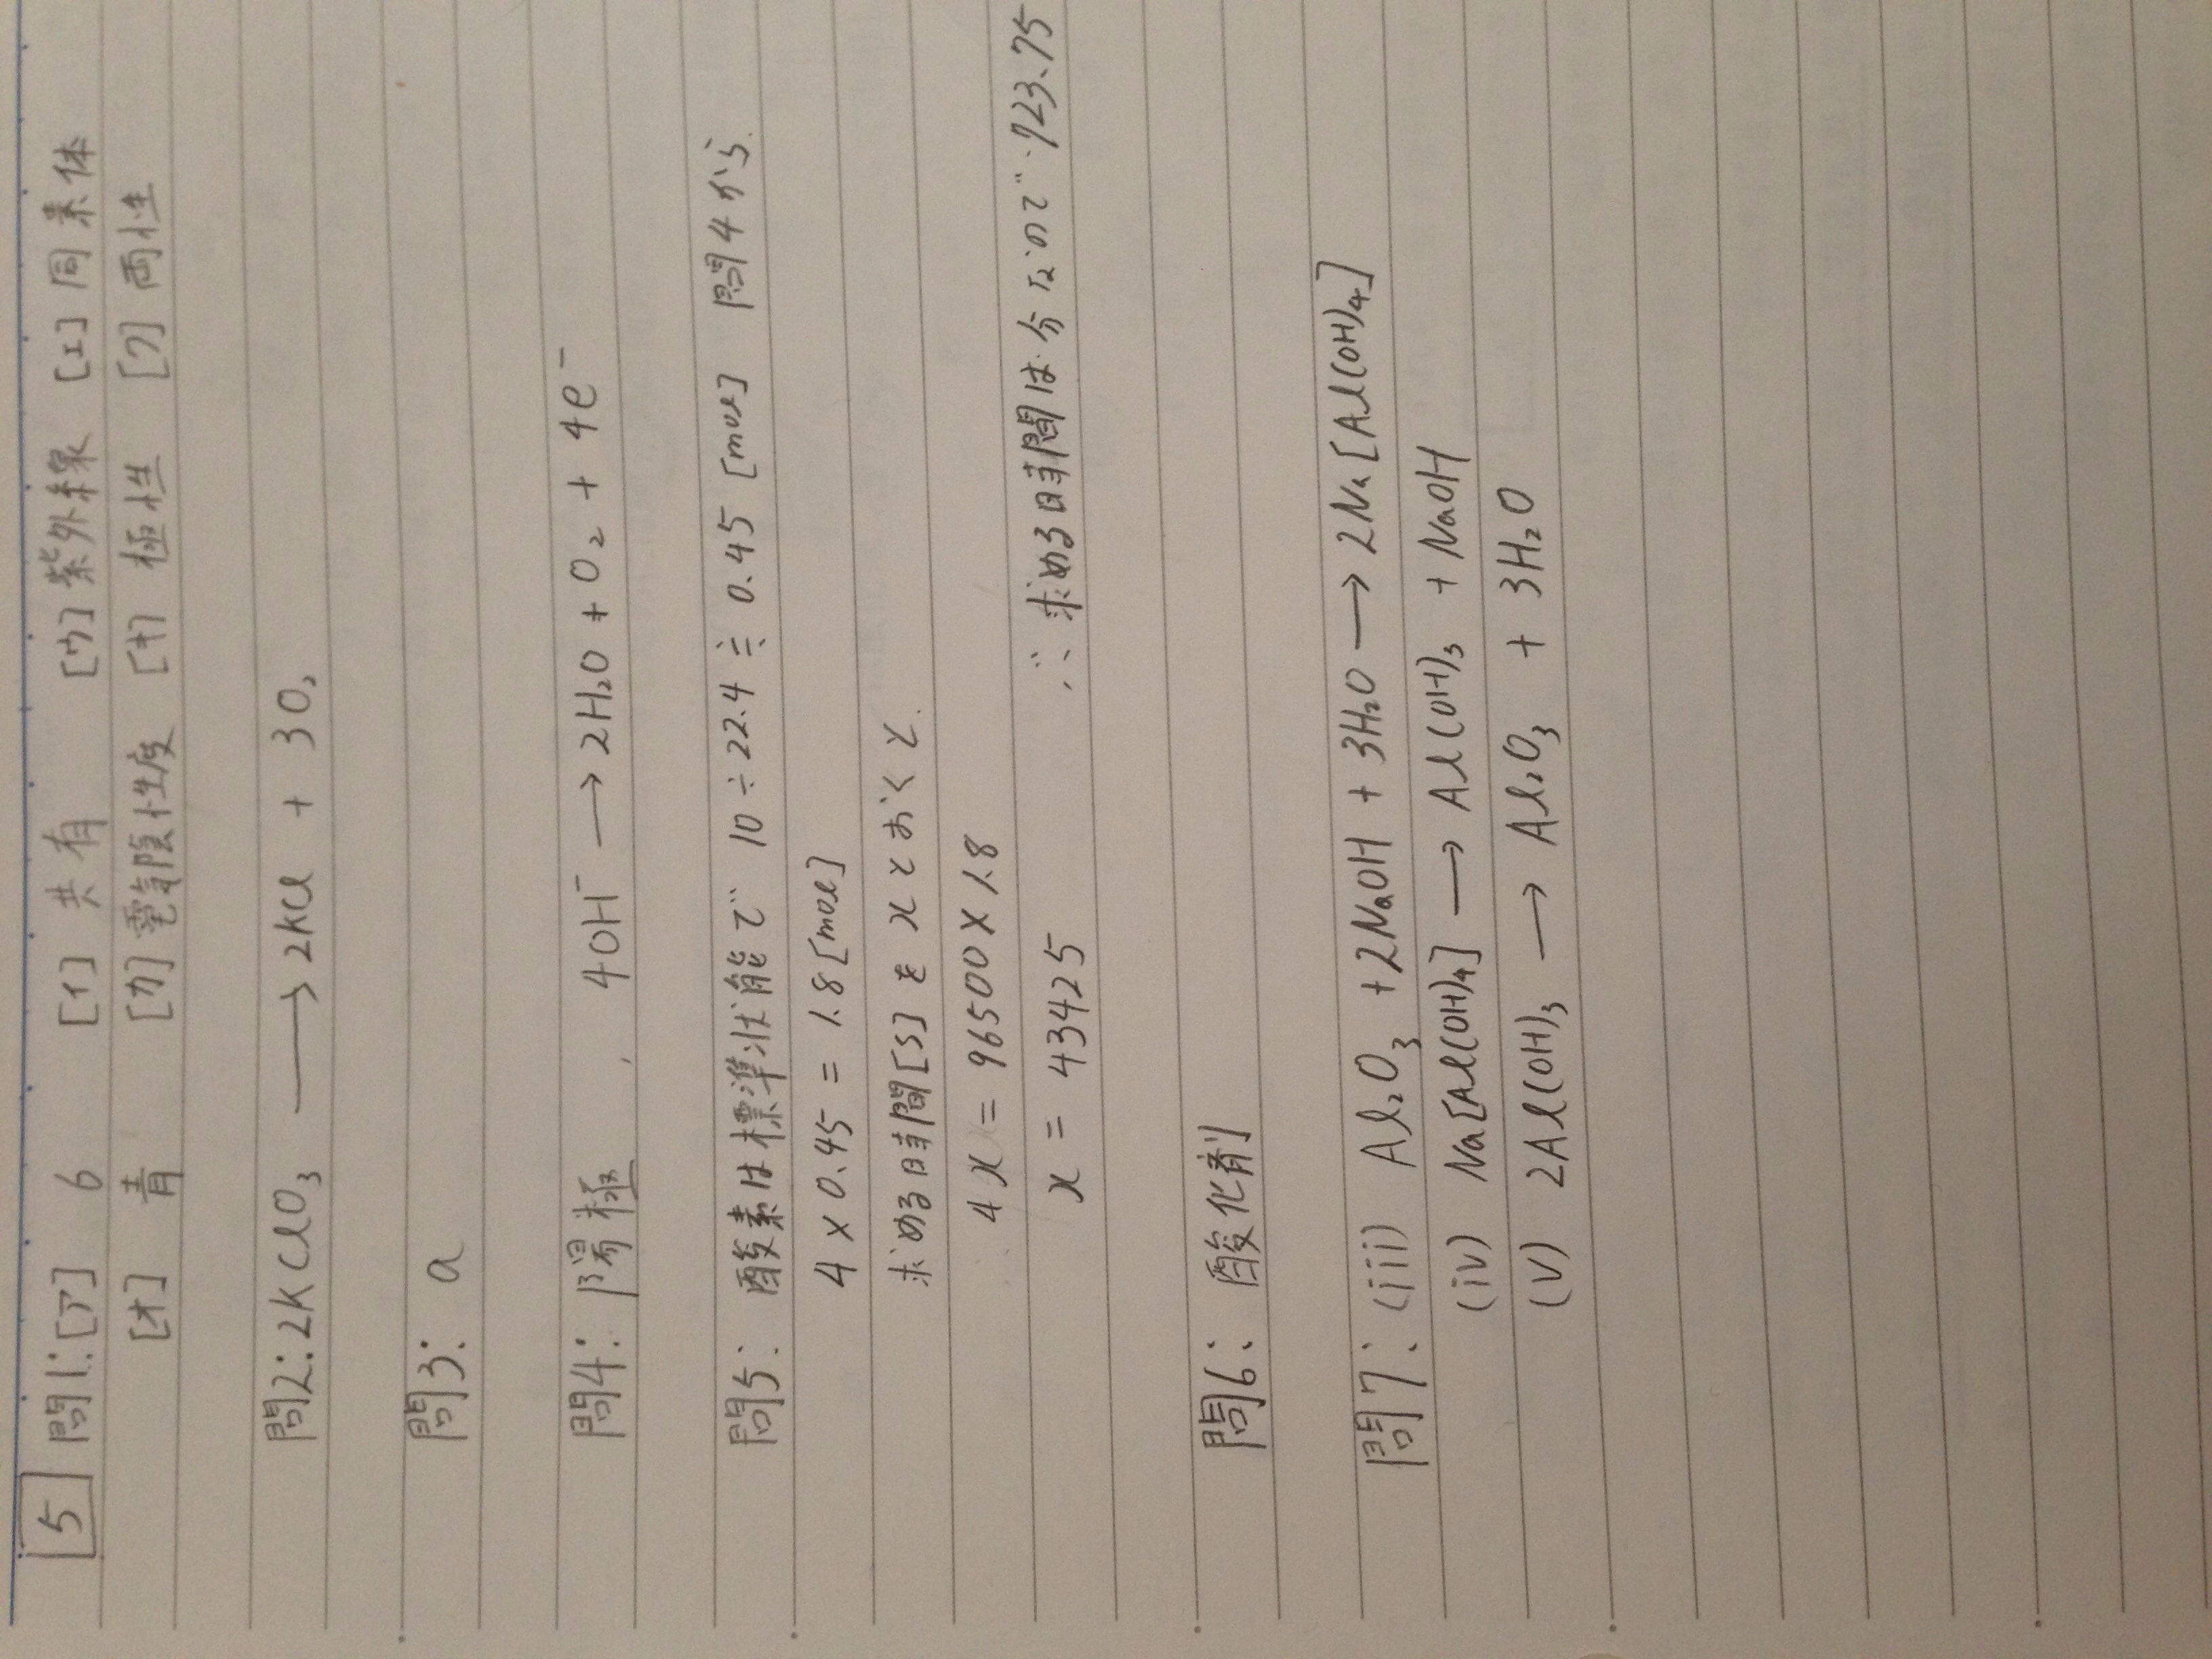 5 問1:[ア] 6 [イ] 共有 [ウ] 紫外線 [エ] 同素体
[オ] 青 [カ] 電気陰性度 [キ] 極性 [ク] 両性
問2:2KClO₃ → 2KCl + 3O₂
問3: a
問4: 陽極 , 4OH⁻ → 2H₂O + O₂ + 4e⁻
問5: 酸素は標準状態で 10÷22.4 ≒ 0.45 [mol] 問4から
4 × 0.45 = 1.8 [mol]
求める時間[s]を x とおくと
4x = 96500 × 1.8
x = 43425 ∴ 求める時間は分なので 723.75
問6: 酸化剤
問7: (iii) Al₂O₃ + 2NaOH + 3H₂O → 2Na[Al(OH)₄]
(iv) Na[Al(OH)₄] → Al(OH)₃ + NaOH
(v) 2Al(OH)₃ → Al₂O₃ + 3H₂O